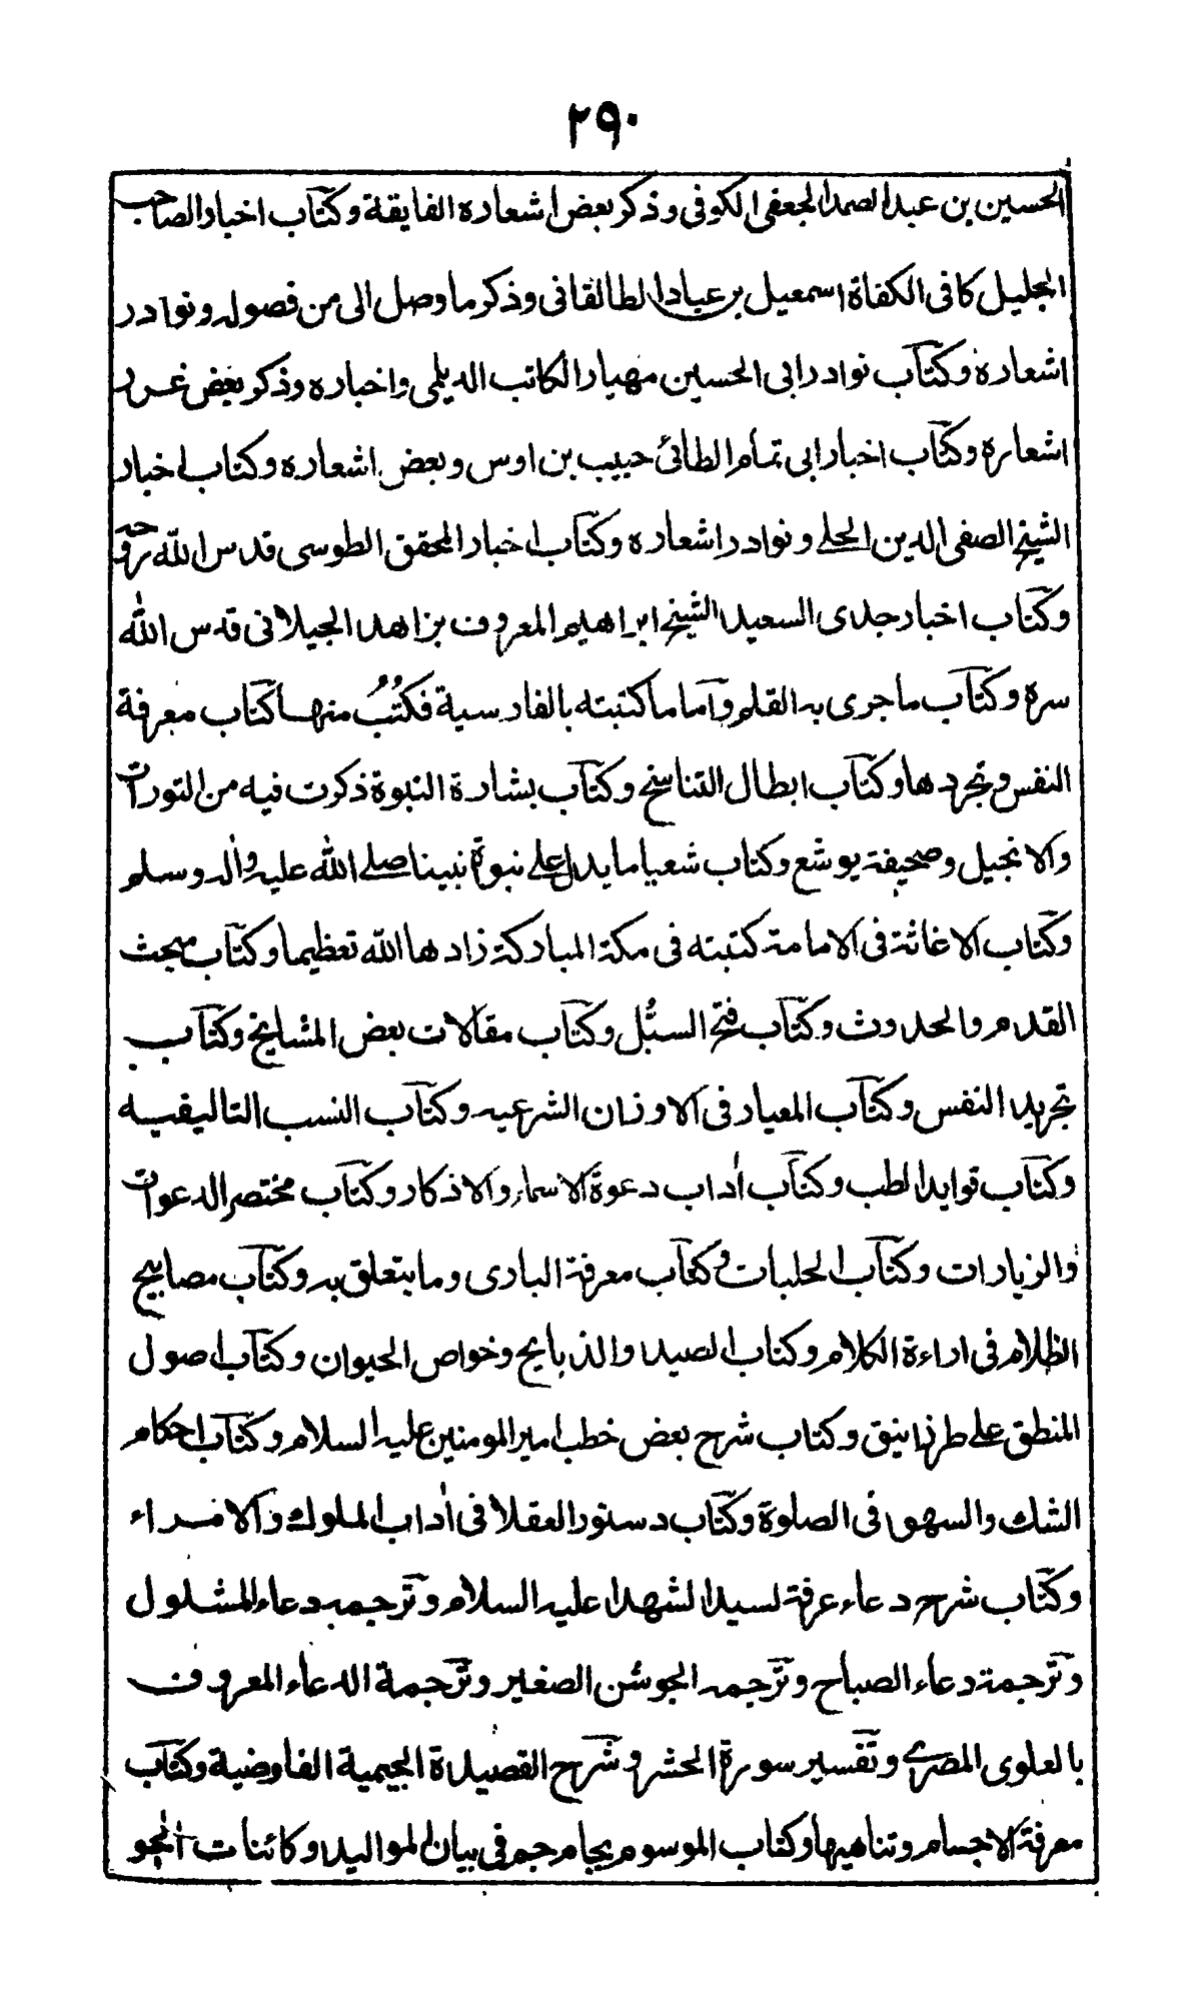 ٢٩٠
الحسين بن عبد الصمد الجعفي الكوفي وذكر بعض اشعاره الفايقة وكتاب اخبار الصاحب
الجليل كافي الكفاة اسمعيل بن عباد الطالقاني وذكر ما وصل الي من فصوله ونوادر
اشعاره وكتاب نوادر ابي الحسين مهيار الكاتب الديلمي واخباره وذكر بعض غرر
اشعاره وكتاب اخبار ابي تمام الطائي حبيب بن اوس وبعض اشعاره وكتاب اخبار
الشيخ الصفي الدين الحلي ونوادر اشعاره وكتاب اخبار المحقق الطوسي قدس الله روحه
وكتاب اخبار جدى السعيد الشيخ ابراهيم المعروف بزاهد الجيلاني قدس الله
سره وكتاب ما جرى به القلم وآما ما كتبته بالفارسية فكُتُبُ منها كتاب معرفة
النفس وتجردها وكتاب ابطال التناسخ وكتاب بشارة النبوة ذكرت فيه من التورات
والانجيل وصحيفة يوشع وكتاب شعيا ما يدل على نبوة نبينا صلى الله عليه واله وسلم
وكتاب الاغاثة في الامامة كتبته في مكة المباركة زادها الله تعظيما وكتاب مبحث
القدم والحدوث وكتاب فتح السبُل وكتاب مقالات بعض المشايخ وكتاب
تجريد النفس وكتاب المعيار في الاوزان الشرعيه وكتاب النسب التاليفيه
وكتاب قوايد الطب وكتاب اداب دعوة الاسماء والاذكار وكتاب مختصر الدعوات
والزيارات وكتاب الحلبات وكتاب معرفة البارى وما يتعلق به وكتاب مصابيح
الظلام في اراءة الكلام وكتاب الصيد والذبايح وخواص الحيوان وكتاب اصول
المنطق على طرز انيق وكتاب شرح بعض خطب امير المومنين عليه السلام وكتاب احكام
الشك والسهو في الصلوة وكتاب دستور العقلا في اداب الملوك والامراء
وكتاب شرح دعاء عرفة لسيد الشهدا عليه السلام وترجمه دعاء المشلول
وترجمة دعاء الصباح وترجمه الجوشن الصغير وترجمة الدعاء المعروف
بالعلوى المصرى وتفسير سورة الحشر وشرح القصيدة الجيمية الفاوضية وكتاب
معرفة الاجسام وتناهيها وكتاب الموسوم بجام جم في بيان المواليد وكائنات الجو